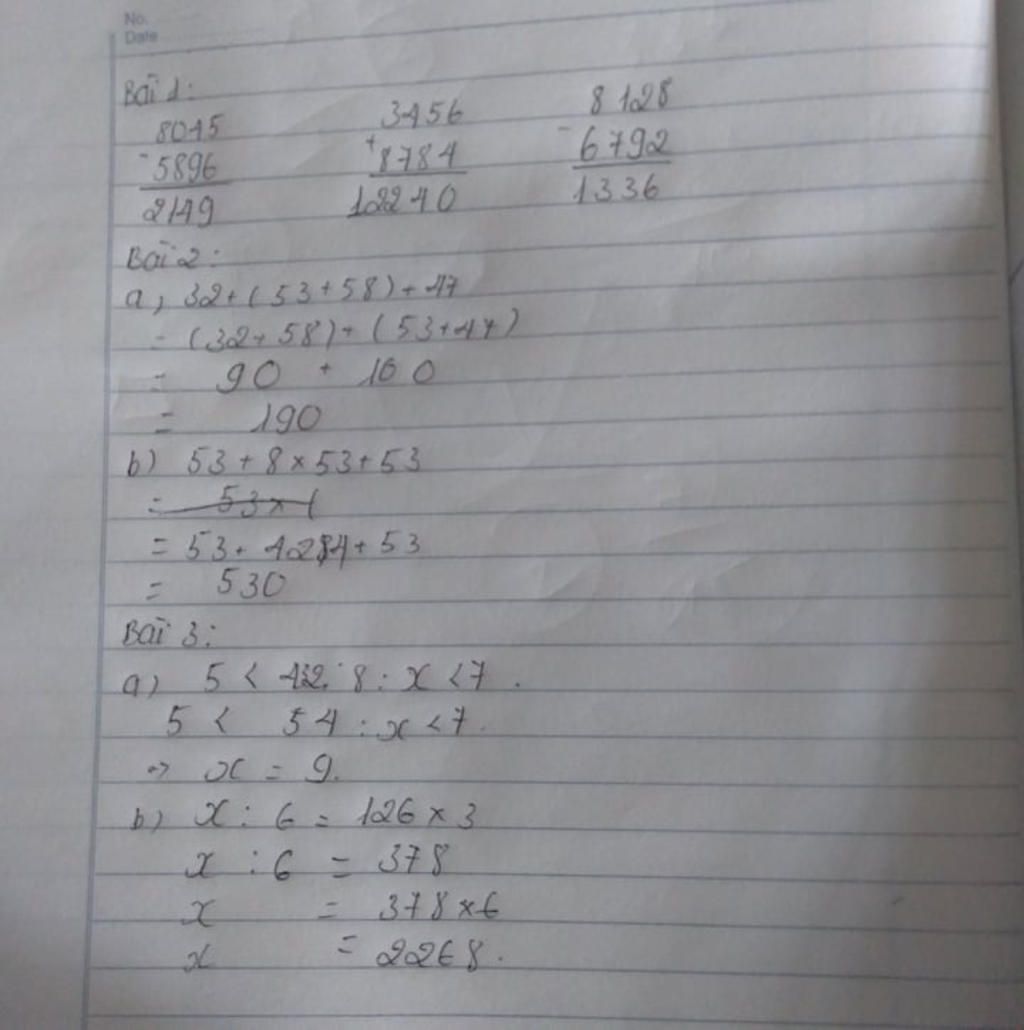 No.
Date
Bài 1:
8045 3456 8128
- 5896 + 8784 - 6792
2149 12240 1336
Bài 2:
a, 32 + ( 53 + 58 ) + 47
= ( 32 + 58 ) + ( 53 + 47 )
= 90 + 100
= 190
b) 53 + 8 × 53 + 53
= 53 × 1
= 53 + 424 + 53
= 530
Bài 3:
a) 5 < 432 : 8 : x < 7 .
5 < 54 : x < 7 .
=> x = 9.
b) x : 6 = 126 × 3
x : 6 = 378
x = 378 × 6
x = 2268 .